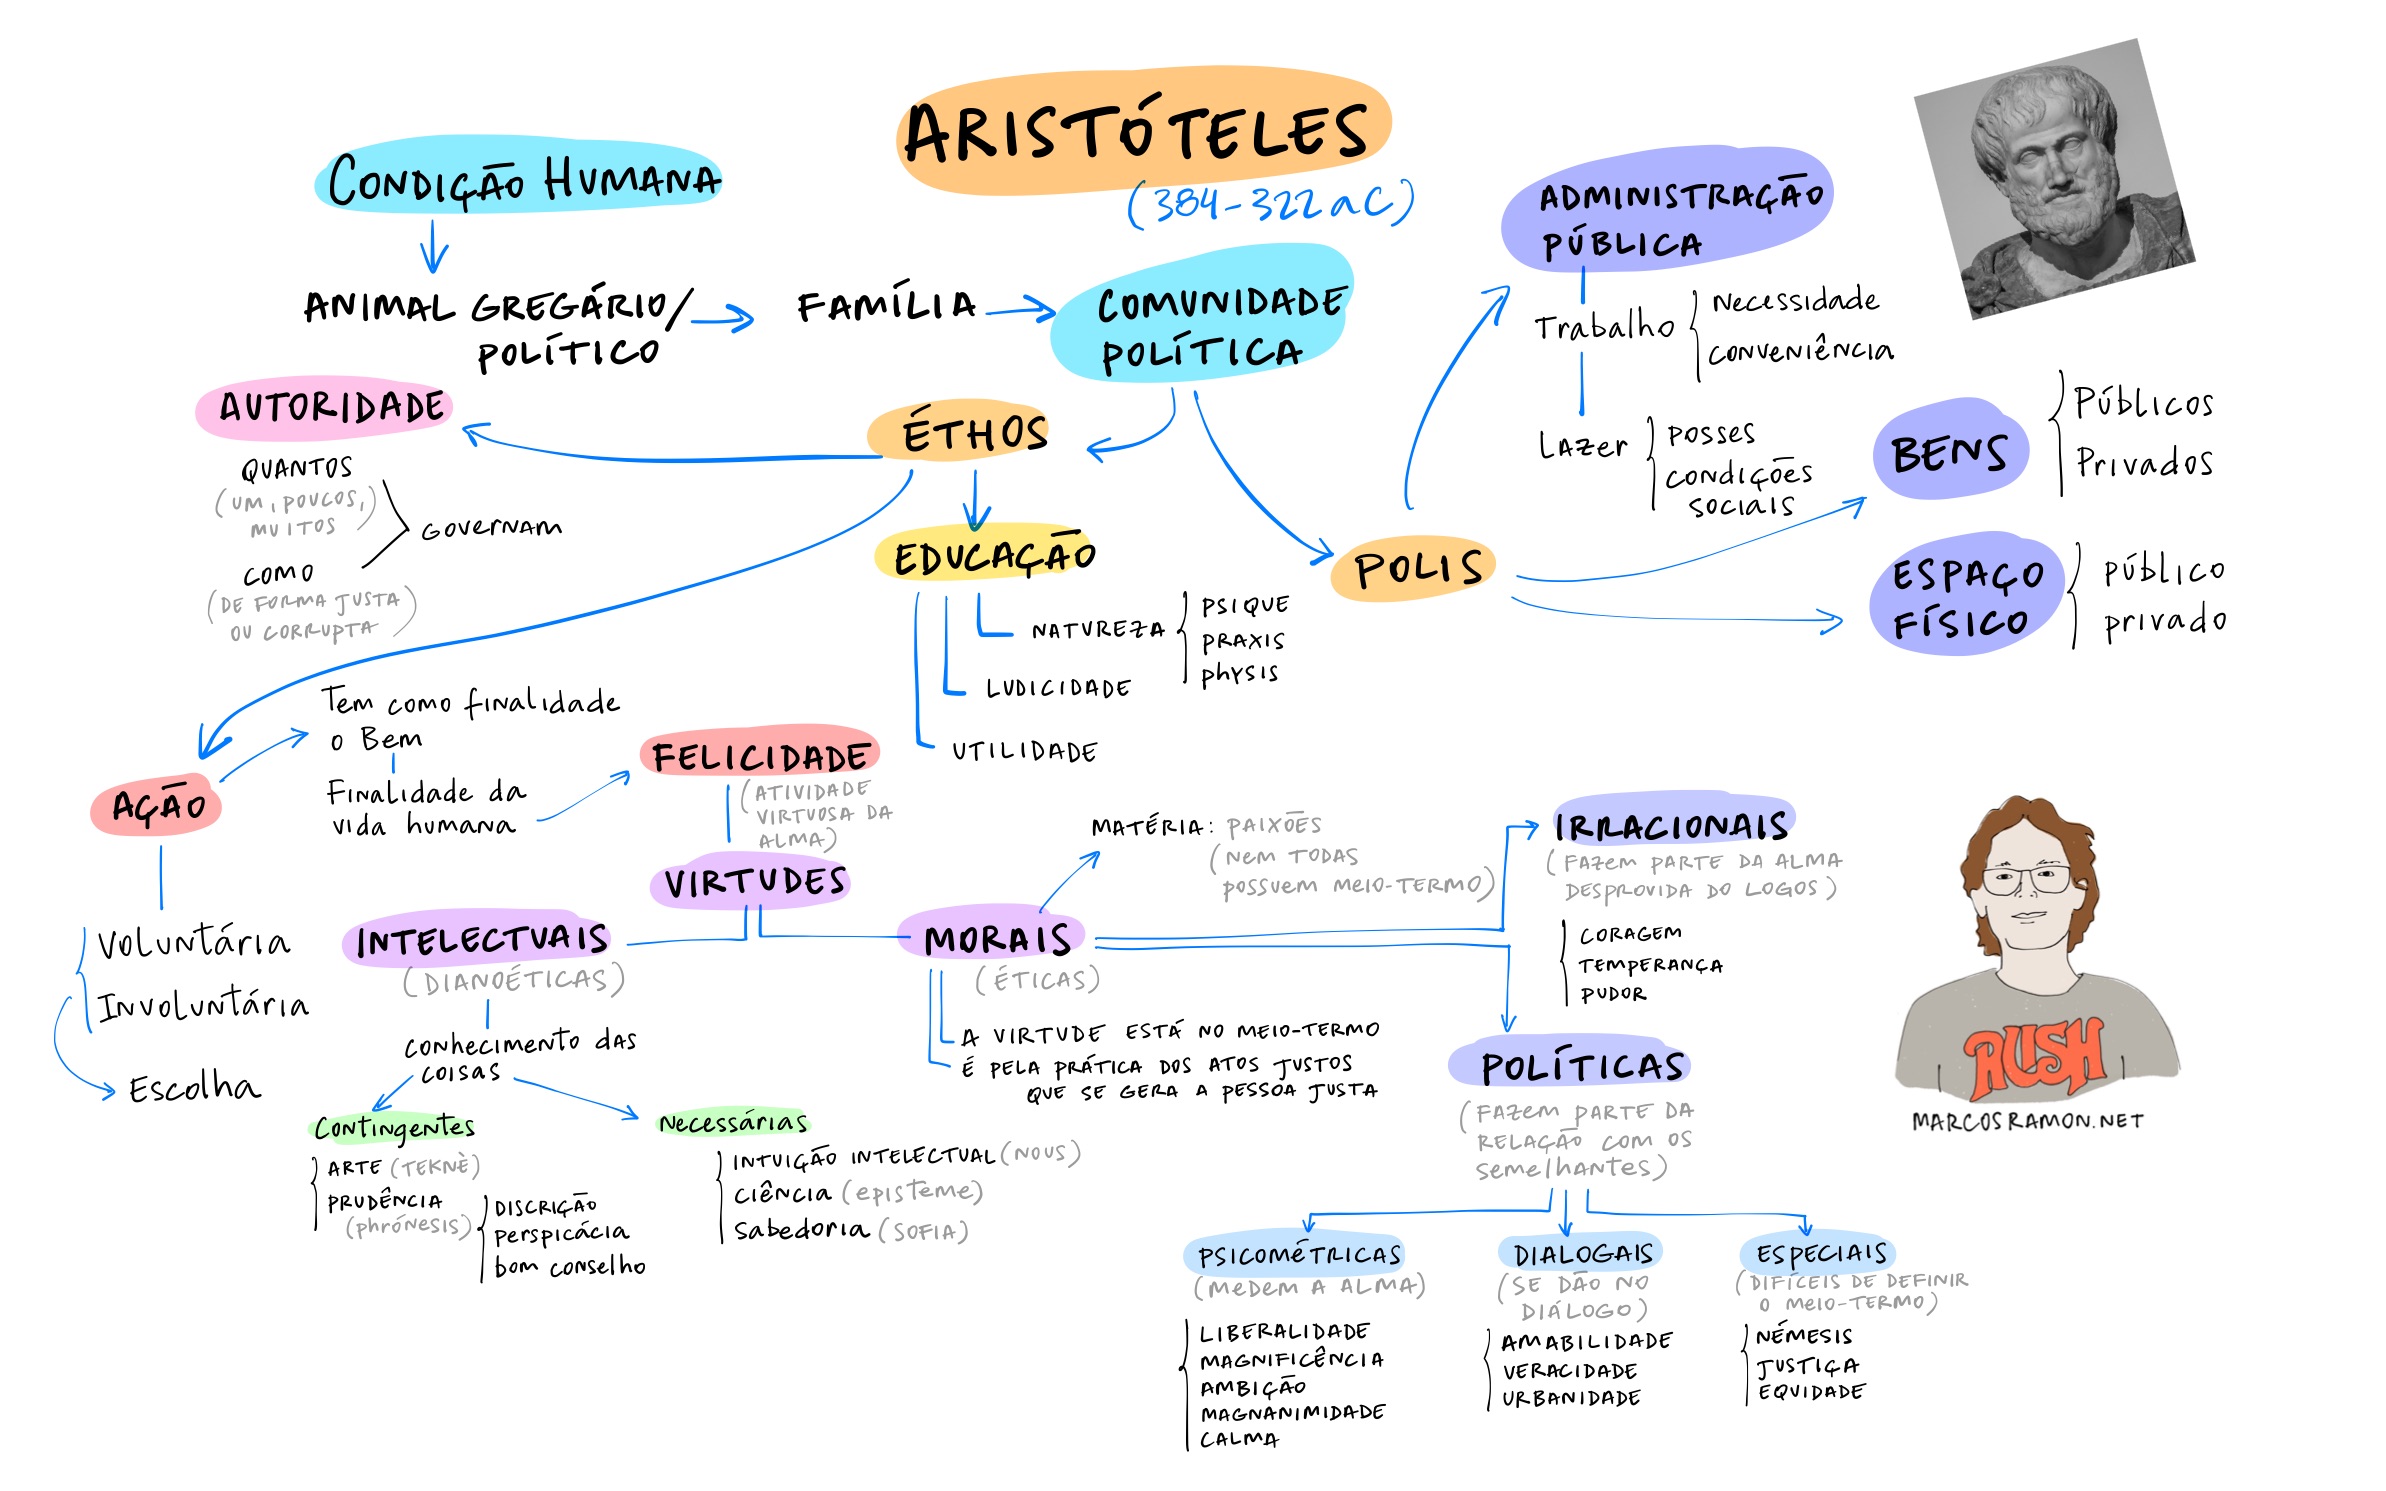 ARISTÓTELES
(384-322 aC)
CONDIÇÃO HUMANA
ANIMAL GREGÁRIO/
POLÍTICO
FAMÍLIA
COMUNIDADE
POLÍTICA
ADMINISTRAÇÃO
PÚBLICA
Trabalho
Necessidade
CONVENIÊNCIA
LAZER
POSSES
CONDIÇÕES
SOCIAIS
BENS
Públicos
Privados
POLIS
ESPAÇO
FÍSICO
PÚBLICO
privado
ÉTHOS
AUTORIDADE
QUANTOS
(UM, POUCOS,
MUITOS)
COMO
(DE FORMA JUSTA
OU CORRUPTA)
GOVERNAM
EDUCAÇÃO
NATUREZA
PSIQUE
PRAXIS
PHYSIS
LUDICIDADE
UTILIDADE
AÇÃO
Tem como finalidade
o Bem
Finalidade da
vida humana
Voluntária
Involuntária
Escolha
FELICIDADE
(ATIVIDADE
VIRTUOSA DA
ALMA)
VIRTUDES
INTELECTUAIS
(DIANOÉTICAS)
conhecimento das
coisas
Contingentes
ARTE (TEKNÈ)
PRUDÊNCIA
(phrónesis)
DISCRIÇÃO
perspicácia
bom conselho
Necessárias
INTUIÇÃO INTELECTUAL (NOUS)
CIÊNCIA (episteme)
Sabedoria (SOFIA)
MORAIS
(ÉTICAS)
MATÉRIA: PAIXÕES
(NEM TODAS
POSSUEM MEIO-TERMO)
A VIRTUDE ESTÁ NO MEIO-TERMO
É PELA PRÁTICA DOS ATOS JUSTOS
QUE SE GERA A PESSOA JUSTA
IRRACIONAIS
(FAZEM PARTE DA ALMA
DESPROVIDA DO LOGOS)
CORAGEM
TEMPERANÇA
PUDOR
POLÍTICAS
(FAZEM PARTE DA
RELAÇÃO COM OS
SEMELHANTES)
PSICOMÉTRICAS
(MEDEM A ALMA)
LIBERALIDADE
MAGNIFICÊNCIA
AMBIÇÃO
MAGNANIMIDADE
CALMA
DIALOGAIS
(SE DÃO NO
DIÁLOGO)
AMABILIDADE
VERACIDADE
URBANIDADE
ESPECIAIS
(DIFÍCEIS DE DEFINIR
O MEIO-TERMO)
NÉMESIS
JUSTIÇA
EQUIDADE
RUSH
MARCOSRAMON.NET